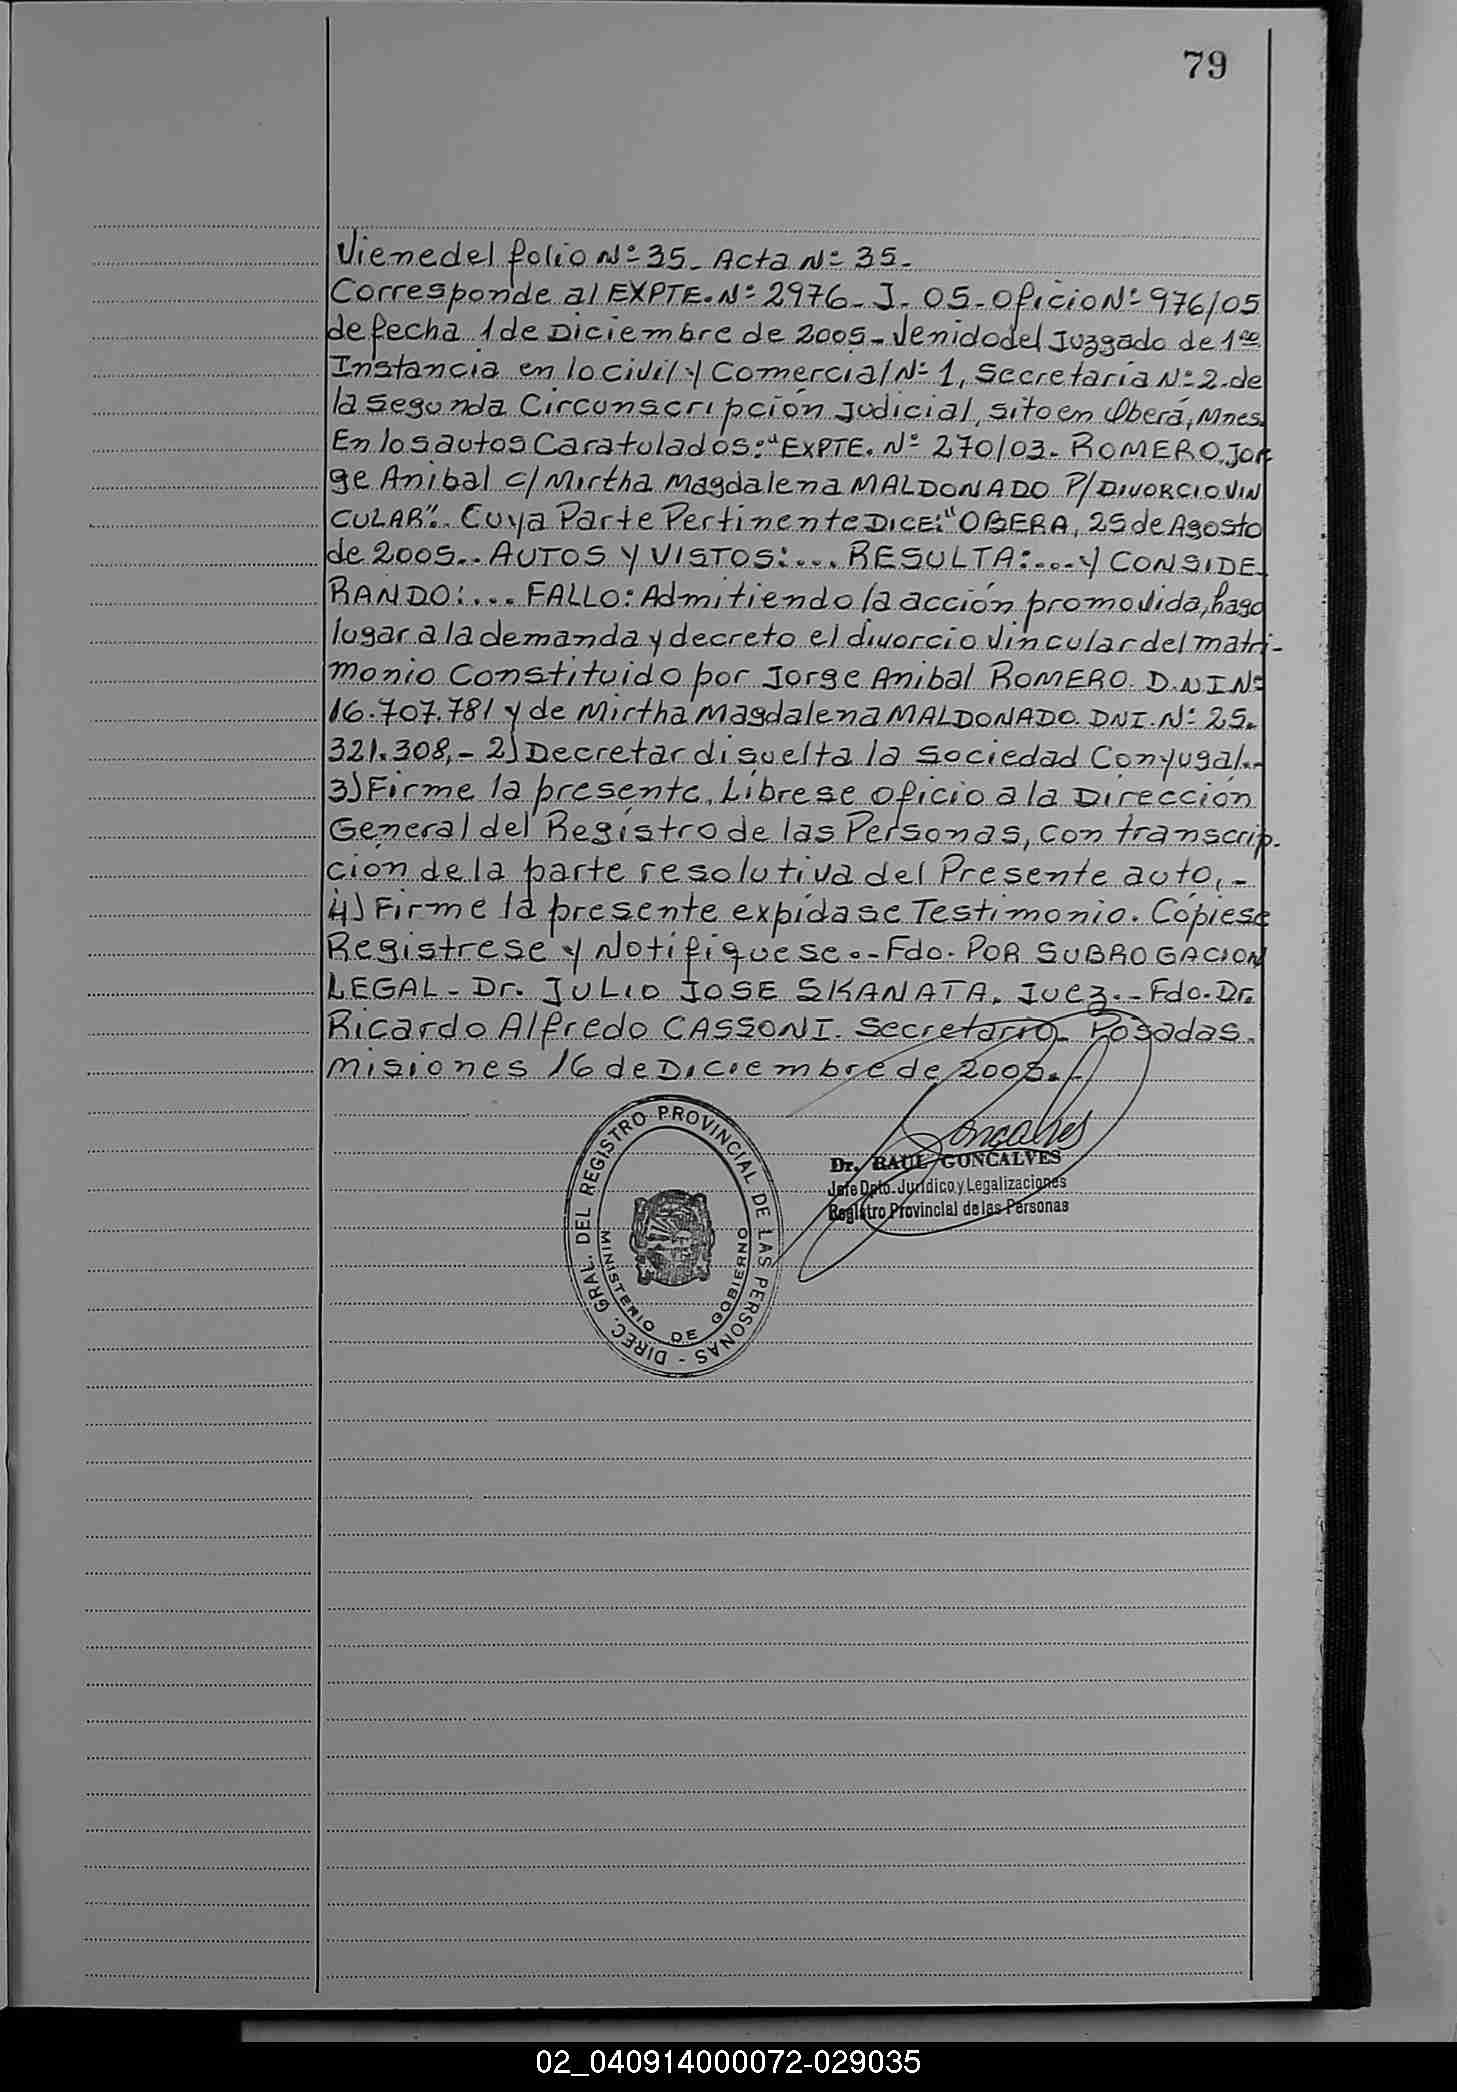 79
Viene del folio Nº 35. Acta Nº 35.
Corresponde al EXPTE. Nº 2976- J. 05- Oficio Nº 976/05
de fecha 1 de Diciembre de 2005- Venido del Juzgado de 1ra
Instancia en lo civil y Comercial Nº 1, Secretaría Nº 2. de
la Segunda Circunscripción Judicial, sito en Oberá, Mnes.
En los autos Caratulados: "EXPTE. Nº 270/03. ROMERO, Jor
ge Anibal c/ Mirtha Magdalena MALDONADO P/ DIVORCIO VIN
CULAR". Cuya Parte Pertinente DICE: "OBERA, 25 de Agosto
de 2005.. AUTOS Y VISTOS:... RESULTA:... y CONSIDE-
RANDO:... FALLO: Admitiendo la acción promovida, hago
lugar a la demanda y decreto el divorcio vincular del matri-
monio Constituido por Jorge Anibal ROMERO. D.N I Nº
16.707.781 y de Mirtha Magdalena MALDONADO. DNI. Nº 25.
321.308,- 2) Decretar disuelta la Sociedad Conyugal.-
3) Firme la presente, Líbrese oficio a la Dirección
General del Registro de las Personas, con transcrip-
ción de la parte resolutiva del Presente auto,-
4) Firme la presente expídase Testimonio. Cópiese
Registrese y Notifíquese.- Fdo. POR SUBROGACION
LEGAL- Dr. JULIO JOSE SKANATA. Juez.- Fdo. Dr.
Ricardo Alfredo CASSONI. Secretario. Posadas.
Misiones 16 de Diciembre de 2005.-
Goncalves
Dr. RAUL GONCALVES
Jefe Dpto. Jurídico y Legalizaciones
Registro Provincial de las Personas
DIREC. GRAL. DEL REGISTRO PROVINCIAL DE LAS PERSONAS -
MINISTERIO DE GOBIERNO
02_040914000072-029035